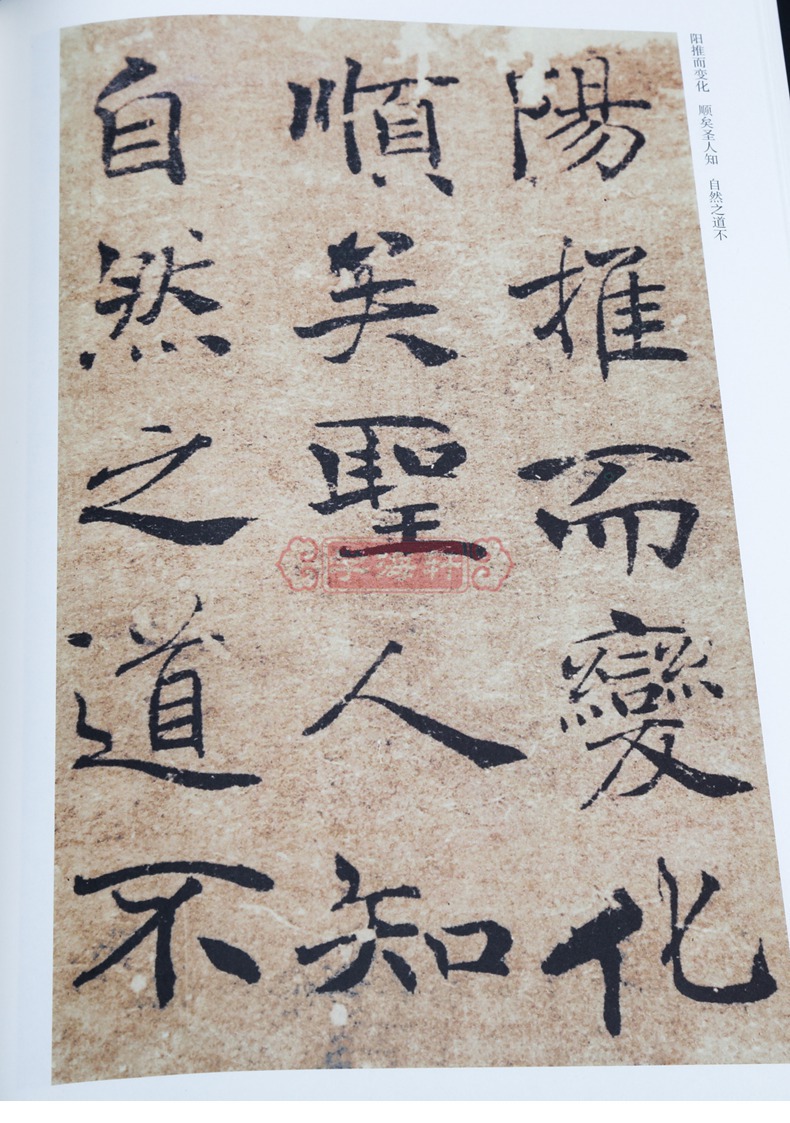 阳推而变化 顺矣圣人知 自然之道不
陽推而變化
順矣聖人知
自然之道不